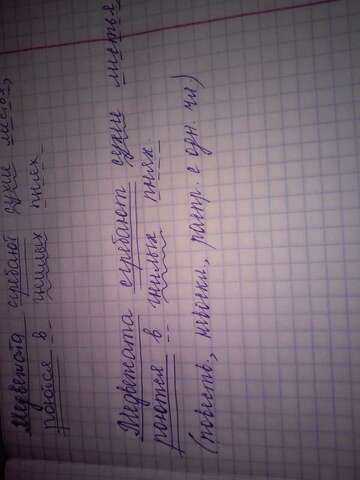 Медвежата сгребают сухие листья,
роются в гнилых пнях.
Медвежата сгребают сухие листья
роются в гнилых пнях.
(повеств., невоскл., распр. с одн. чл)